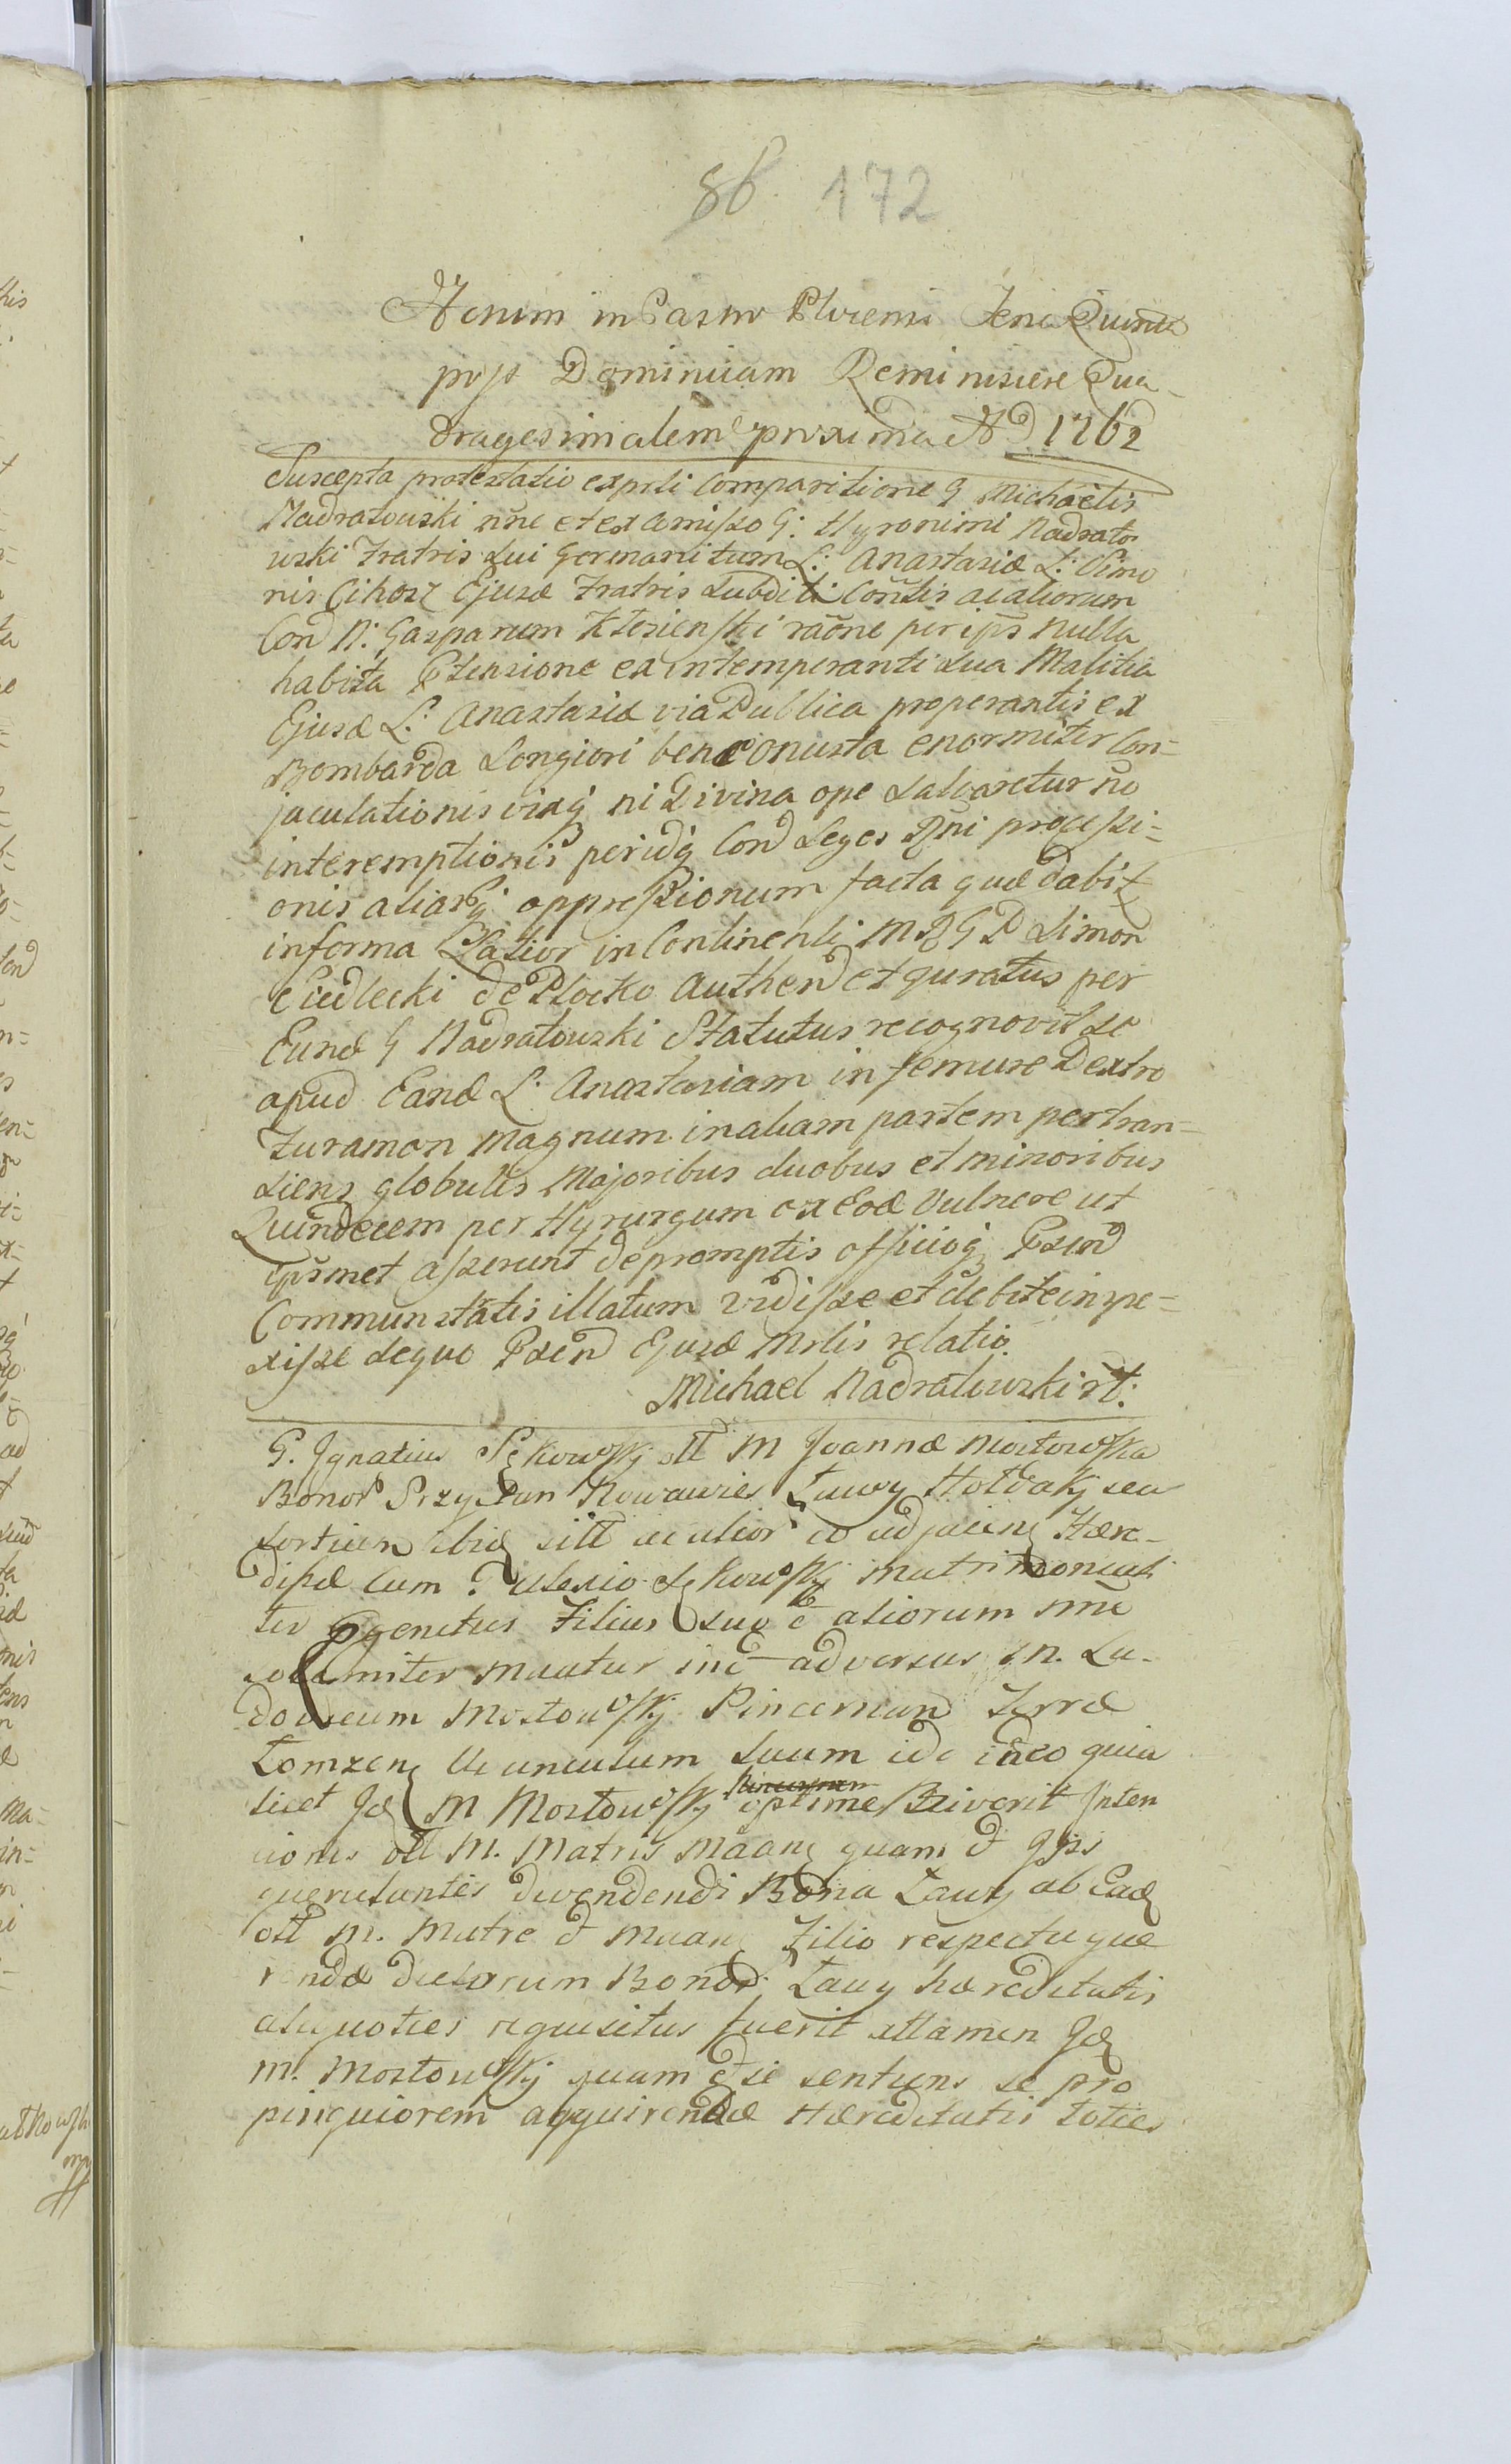 86 172
Actum in Castro Plocensi Feria Quinta
post Dominicam Reminiscere Qua-
dragesimalem proxima AD 1762
Suscepta protestatio ex prti Comparitione G Michaelis
Nadratowski nne et ex Comisso G: Hyronimi Nadrato
wski Fratris Sui Germani tum L: Anastasiæ L: Simo
nis Cihosz Ejusd Fratris Subditi Contis ac aliorum
Con N: Gasparum Klesienski raone per ips nulla
habita Ptensione ex intemperanti sua Malitia
Ejusd L: Anastasiæ via Publica properantis ex
Bombarda Longiori bene onusta enormiter Con-
jaculationis vixq ni Divina ope salvaretur no
interemptionis peridq Cond Leges Rgni processi-
onis aliarq oppressionum facta quæ dabit
in forma Platior in Continenti M R G P Simon
Ciedlecki de Plocko Authend et juratus per
Eund G Nadratowski Statutus recognovit se
apud Eand L: Anastasiam in femure Dextro
Furamon magnum in aliam partem pertran-
siens globulis Majoribus duobus et minoribus
Quindecem per Hyrurgum ex Eod Vulnere ut
ipsmet asserunt depromptis officioq Psend
Communstratis illatum vidisse et debite inspe-
xisse de quo Psend Ejusd Mrlis relatio
Michael Nadratowski mt:
G. Ignatius Sękowskj oll M Joannæ Mostowska
Bonor Przystan Nowawies Ławy Hołdakj seu
sortium ibidę sitt ac alior eo adjacenę Hære-
dissæ Cum G Alexio Sękowskj matrimoniali
ter Pgenitus Filius suo et aliorum nne
solemniter mantur inc adversus M. Lu-
dovicum Mostowskj Pincernam Terræ
Łomzenę Avunculum Suum ide ideo quia
Pincernam
licet Idę M Mostowskj optime sciverit Inten
cionis oll M. Matris Maanę quam et ipsi
querulantis divendendi Bona Ławy ab Eadę
oll M. Matre et Maanę Filio respectu quæ
rendæ dictorum Bonor Ławy hæreditatis
aliquoties requisitus fuerit attamen Idę
M. Mostowskj quam et si sentiens se pro
pinquiorem acquirendæ Hæreditatis toties